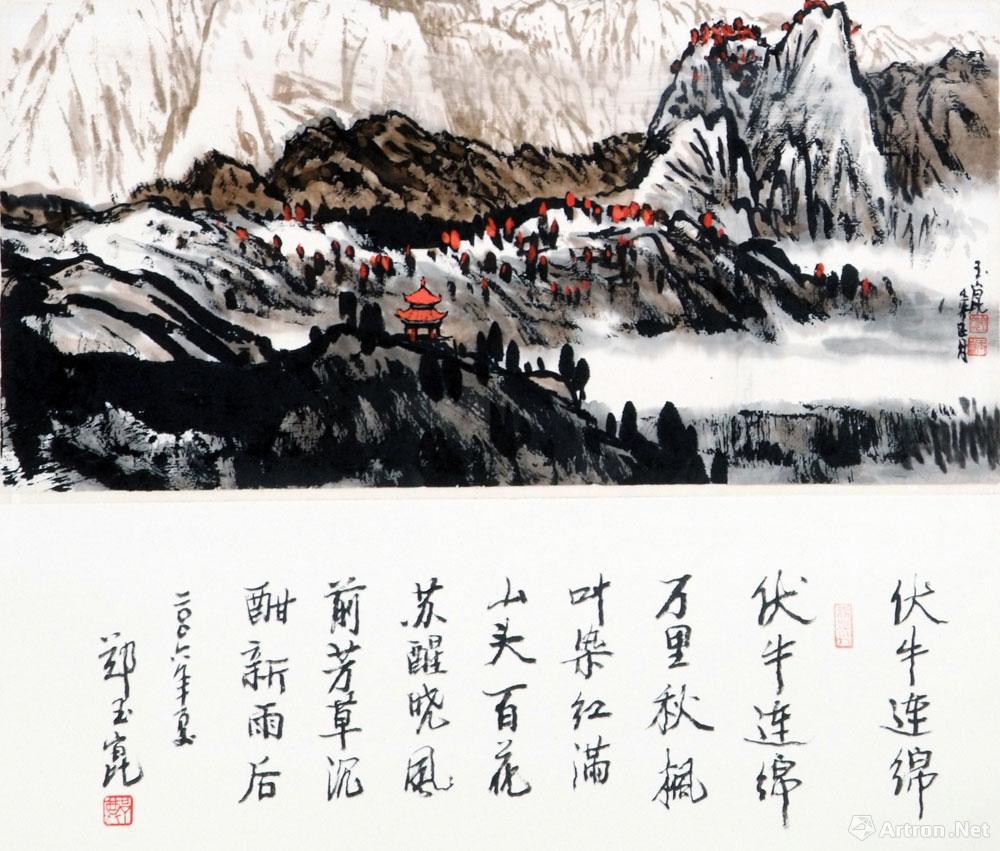 玉崑
伏牛连绵
伏牛连绵
万里秋枫
叶染红满
山头百花
苏醒晓风
前芳草沉
酣新雨后
二〇〇六年夏
郑玉崑
Artron.Net